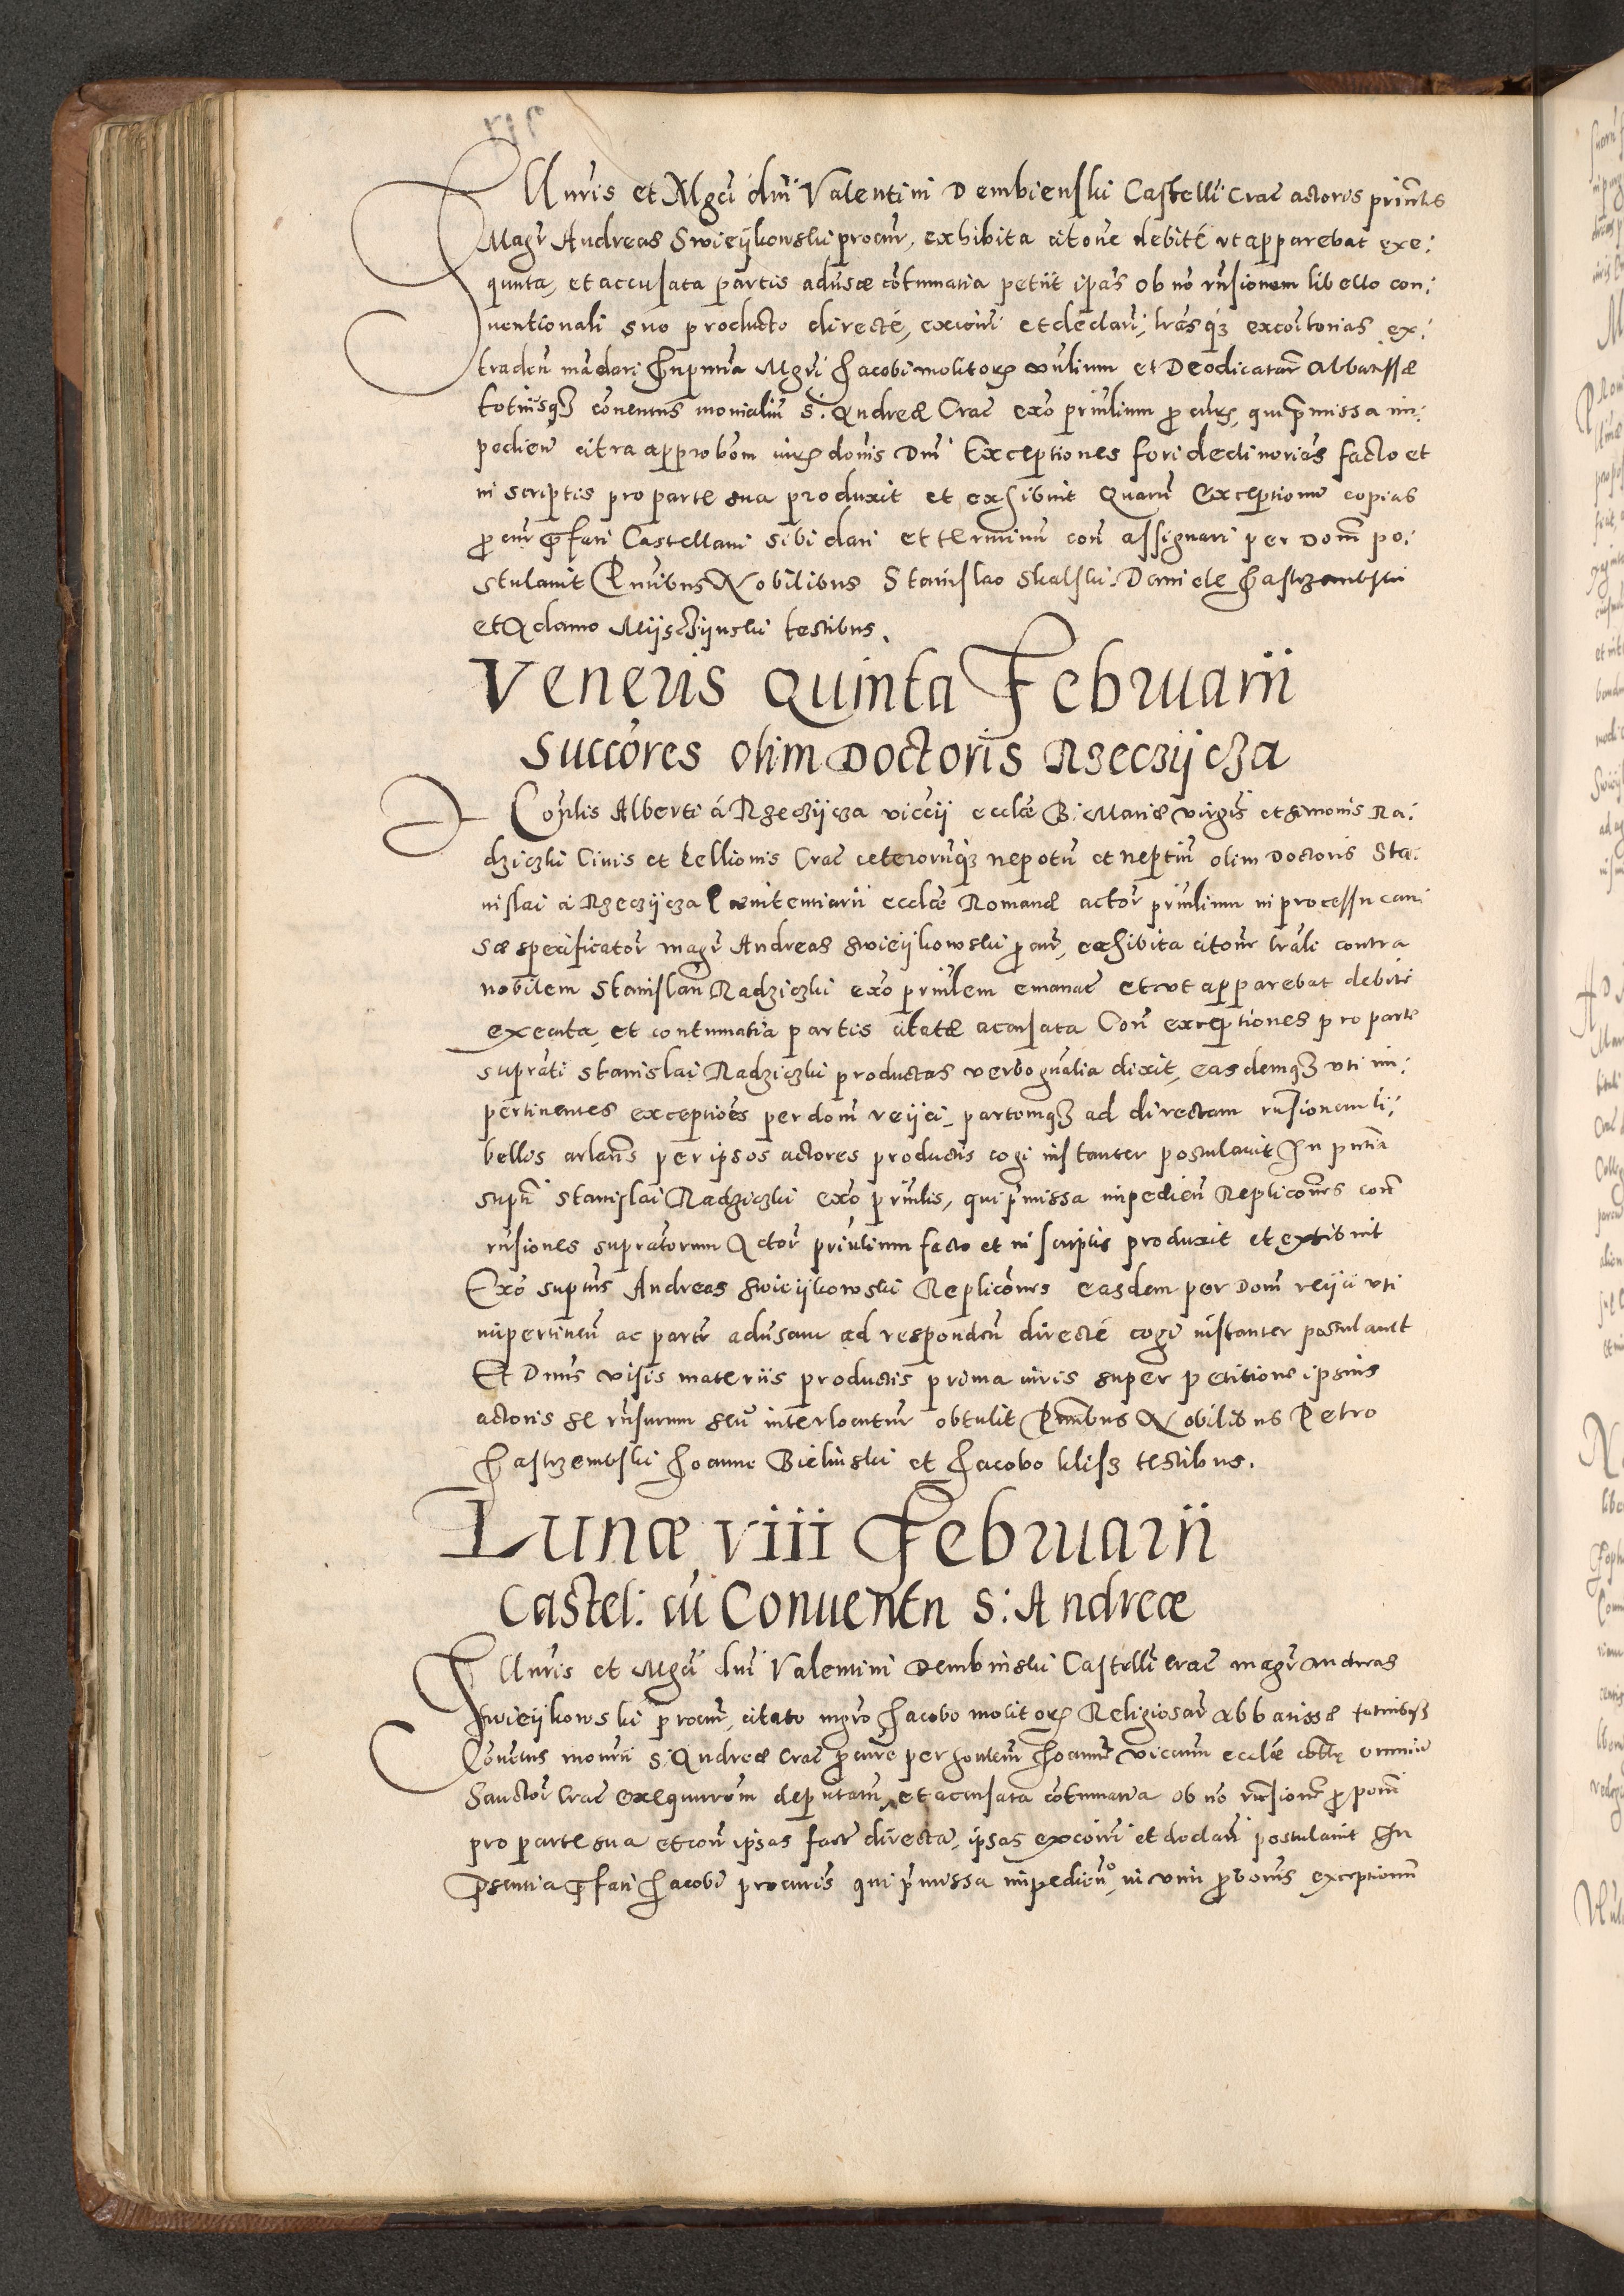 Illuris et Mgci dni Valentini Dembienski Castelli Crac actoris prinlis
Magr Andreas Swieijkowski procur, exhibita citone debité ut apparebat exe:
quuta, et accusata partis aduse cotumatia petiit ipas ob no rnsionem libello con:
uentionali suo producto directé, exconi et declari, lrasqz excoitorias ex:
traden madari In pntia Mgri Jacobi molitoris exulium et Deodicatar Abbatissæ
totiusqz conentus monialiu S. Andreæ Crac exo prinlium procuris, qui pmissa im:
pedien citra approbom iurisdonis Dni Exceptiones fori declinorias facto et
in scriptis pro parte sua produxit et exhibuit Quaru Exceptionu copias
procur pfati Castellani sibi dari et terminu con assignari per Dom po:
stulauit Pntibus Nobilibus Stanislao Skalski Daniele Jastrzembski
et Adamo Mijschijnski testibus.
Veneris Quinta Februarii
Succores olim Doctoris Rzeczijcza
Honorlis Alberti á Rzeczijcza viccij ecclæ B. Mariæ virgis et Simonis Ra:
dziczki Ciuis et tellionis Crac ceterorumqz nepotu et neptiu olim Doctoris Sta:
nislai á Rzeczijcza Pænitentiarii ecclæ Romanæ actor prinlium in processu cau
sæ specificator magr Andreas Swieijkowski procur, exhibita citone lrali contra
nobilem Stanislau Radziczki exo prinlem emanat et ut apparebat debite
executa, et contumatia partis citatæ acusata Con exceptiones pro parte
suprati Stanislai Radziczki productas verbo gnalia dixit, easdemqz uti im:
pertinentes exceptioes per dom reijci, partemqz ad directam rnsionem li:
bellos arlans per ipsos actores productis cogi instanter postulauit In pntia
supti Stanislai Radziczki exo prinlis, qui pmissa impedien Replicones con
rnsiones supratorum Actor prinlium facto et in scriptis produxit et exhibuit
Exo suptus Andreas Swieijkowski Replicones easdem per Dom reijci uti
impertinen ac parte adusam ad responden directé cogi instanter postulauit
Et Dnus visis materiis productis prima iuris super petitione ipsius
actoris se rnsurum seu interlocutur obtulit Pntibus Nobilibus Petro
Jastrzembski Joanne Bielinski et Jacobo klisz testibus.
Lunæ viii Februarii
Castel: cu Conuentu S: Andreæ
Illuris et Mgci dni Valentini Dembinski Castelli Crac magr Andreas
Swieijkowski procur, citato mgro Jacobo molitoris Religiosar Abbatissæ totiusqz
Couetus moniu S Andreæ Crac procure per honlem Joanne vicium ecclæ omniu
Sanctor Crac exequutorem deputatum, et acusata cotumatia ob no rnsione proponi
pro parte sua et con ipsas facte directa, ipsas exconi et declari postulauit In
psentia pfati Jacobi procuris qui pmissa impedien, in vim probonis exceptionu